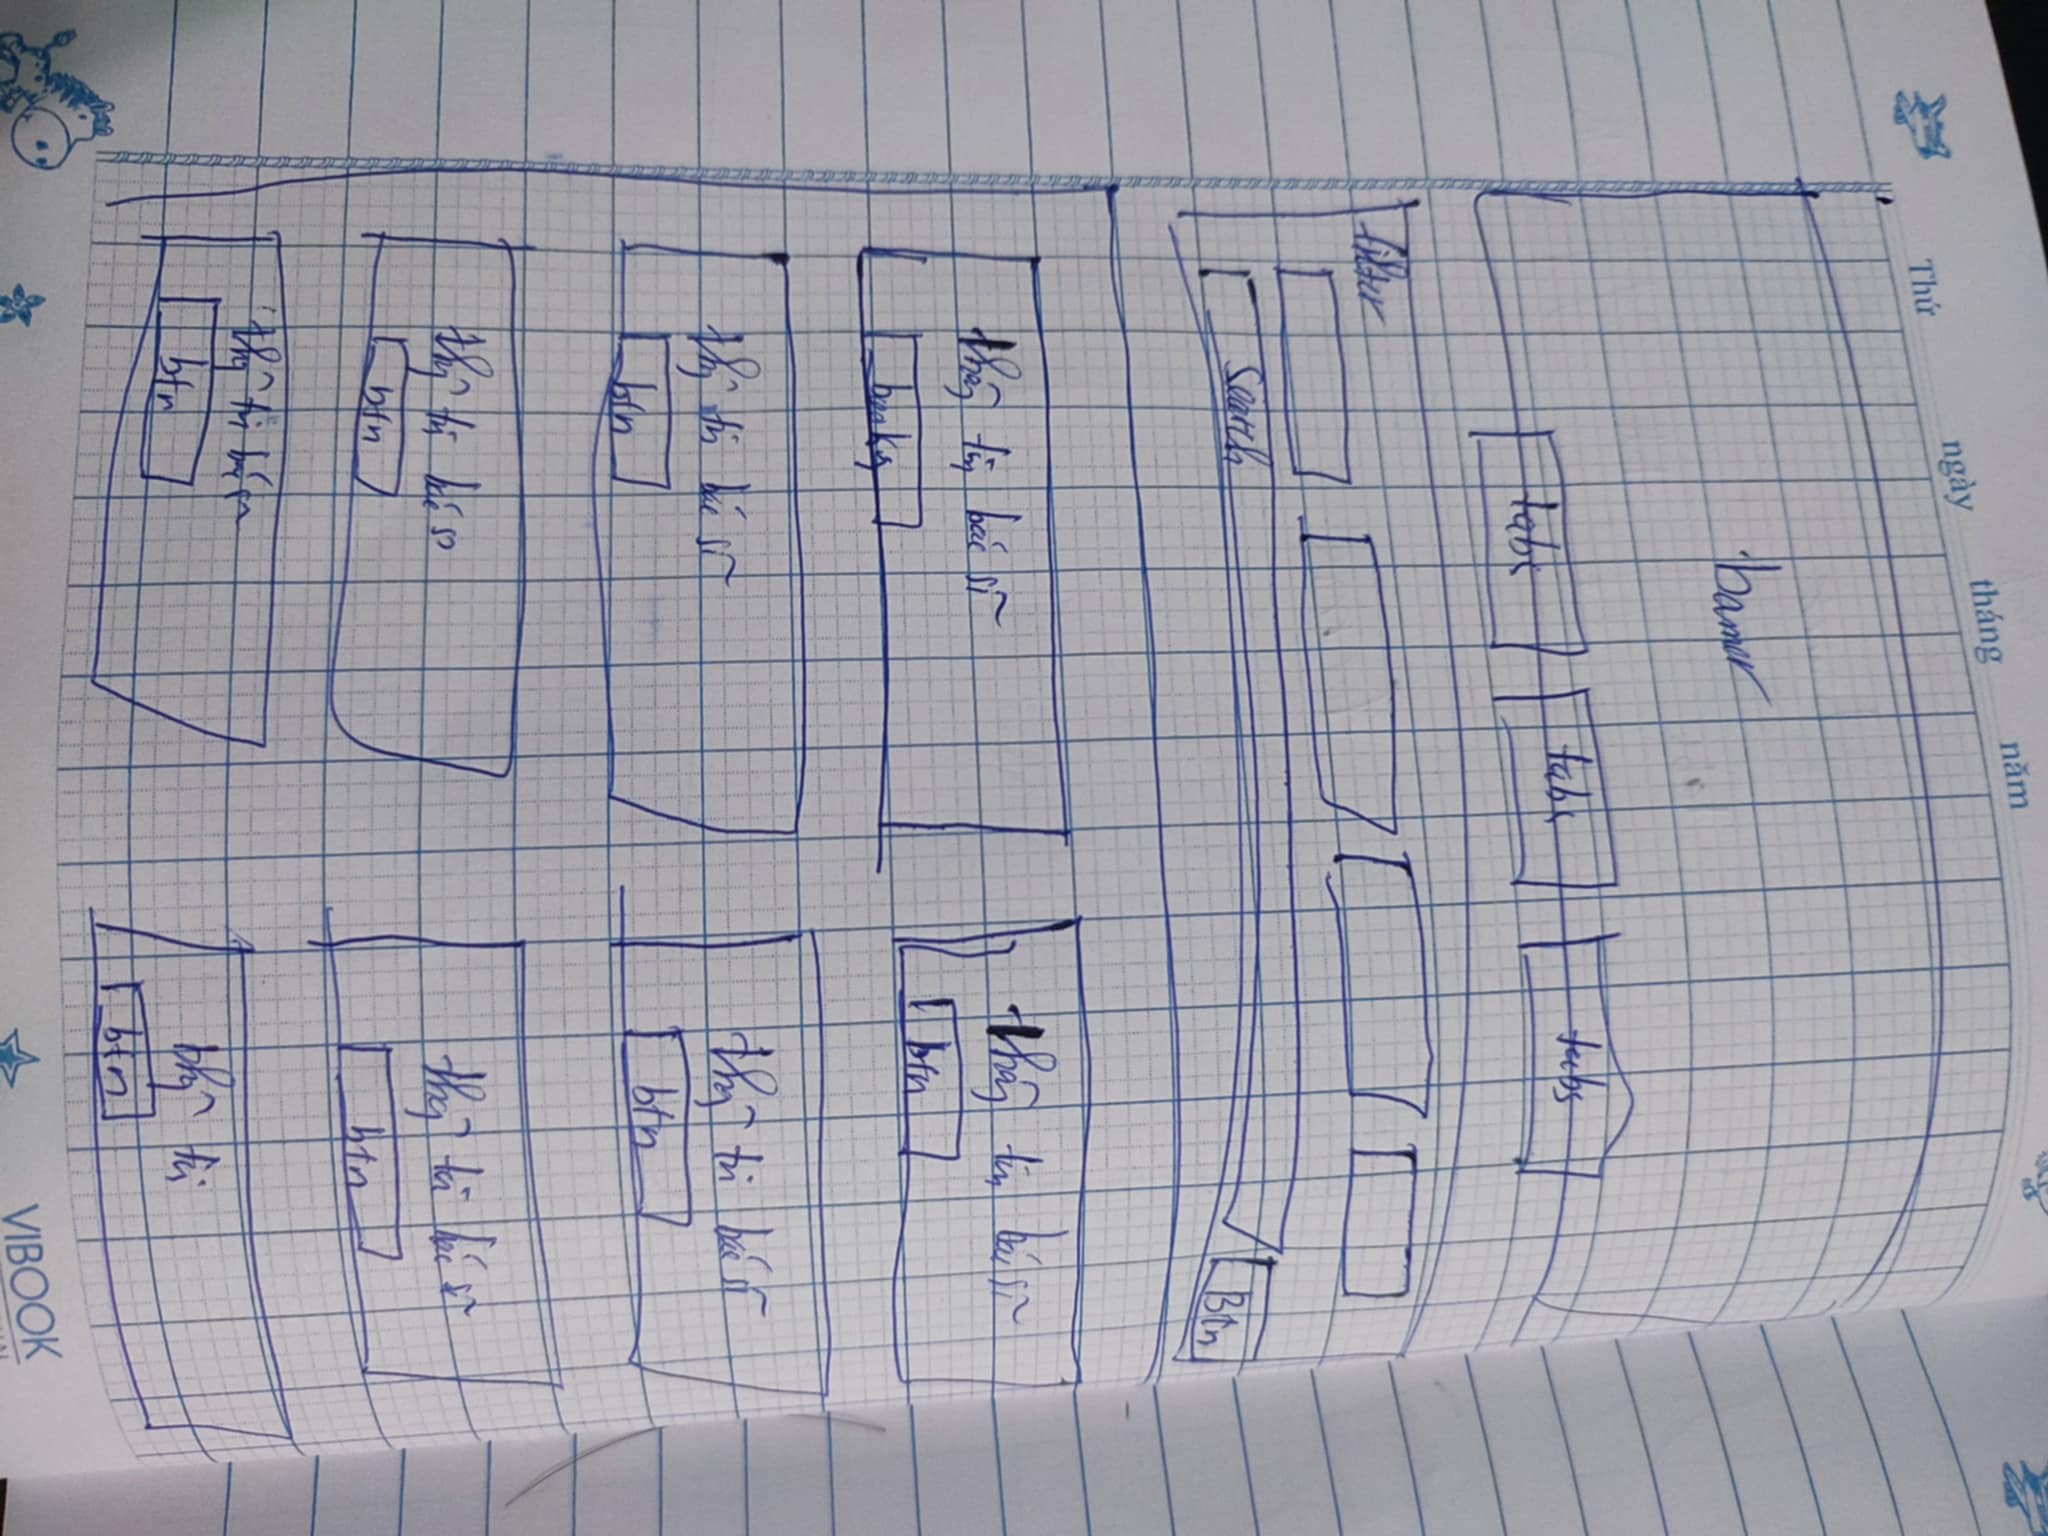 Thứ ngày tháng năm
banner
tabs tabs tabs
filter
Search Btn
thông tin bác sĩ thông tin bác sĩ
btn
thông tin bác sĩ thông tin bác sĩ
btn btn
thông tin bác sĩ thông tin bác sĩ
btn btn
thông tin bác sĩ thông tin
btn btn
VIBOOK